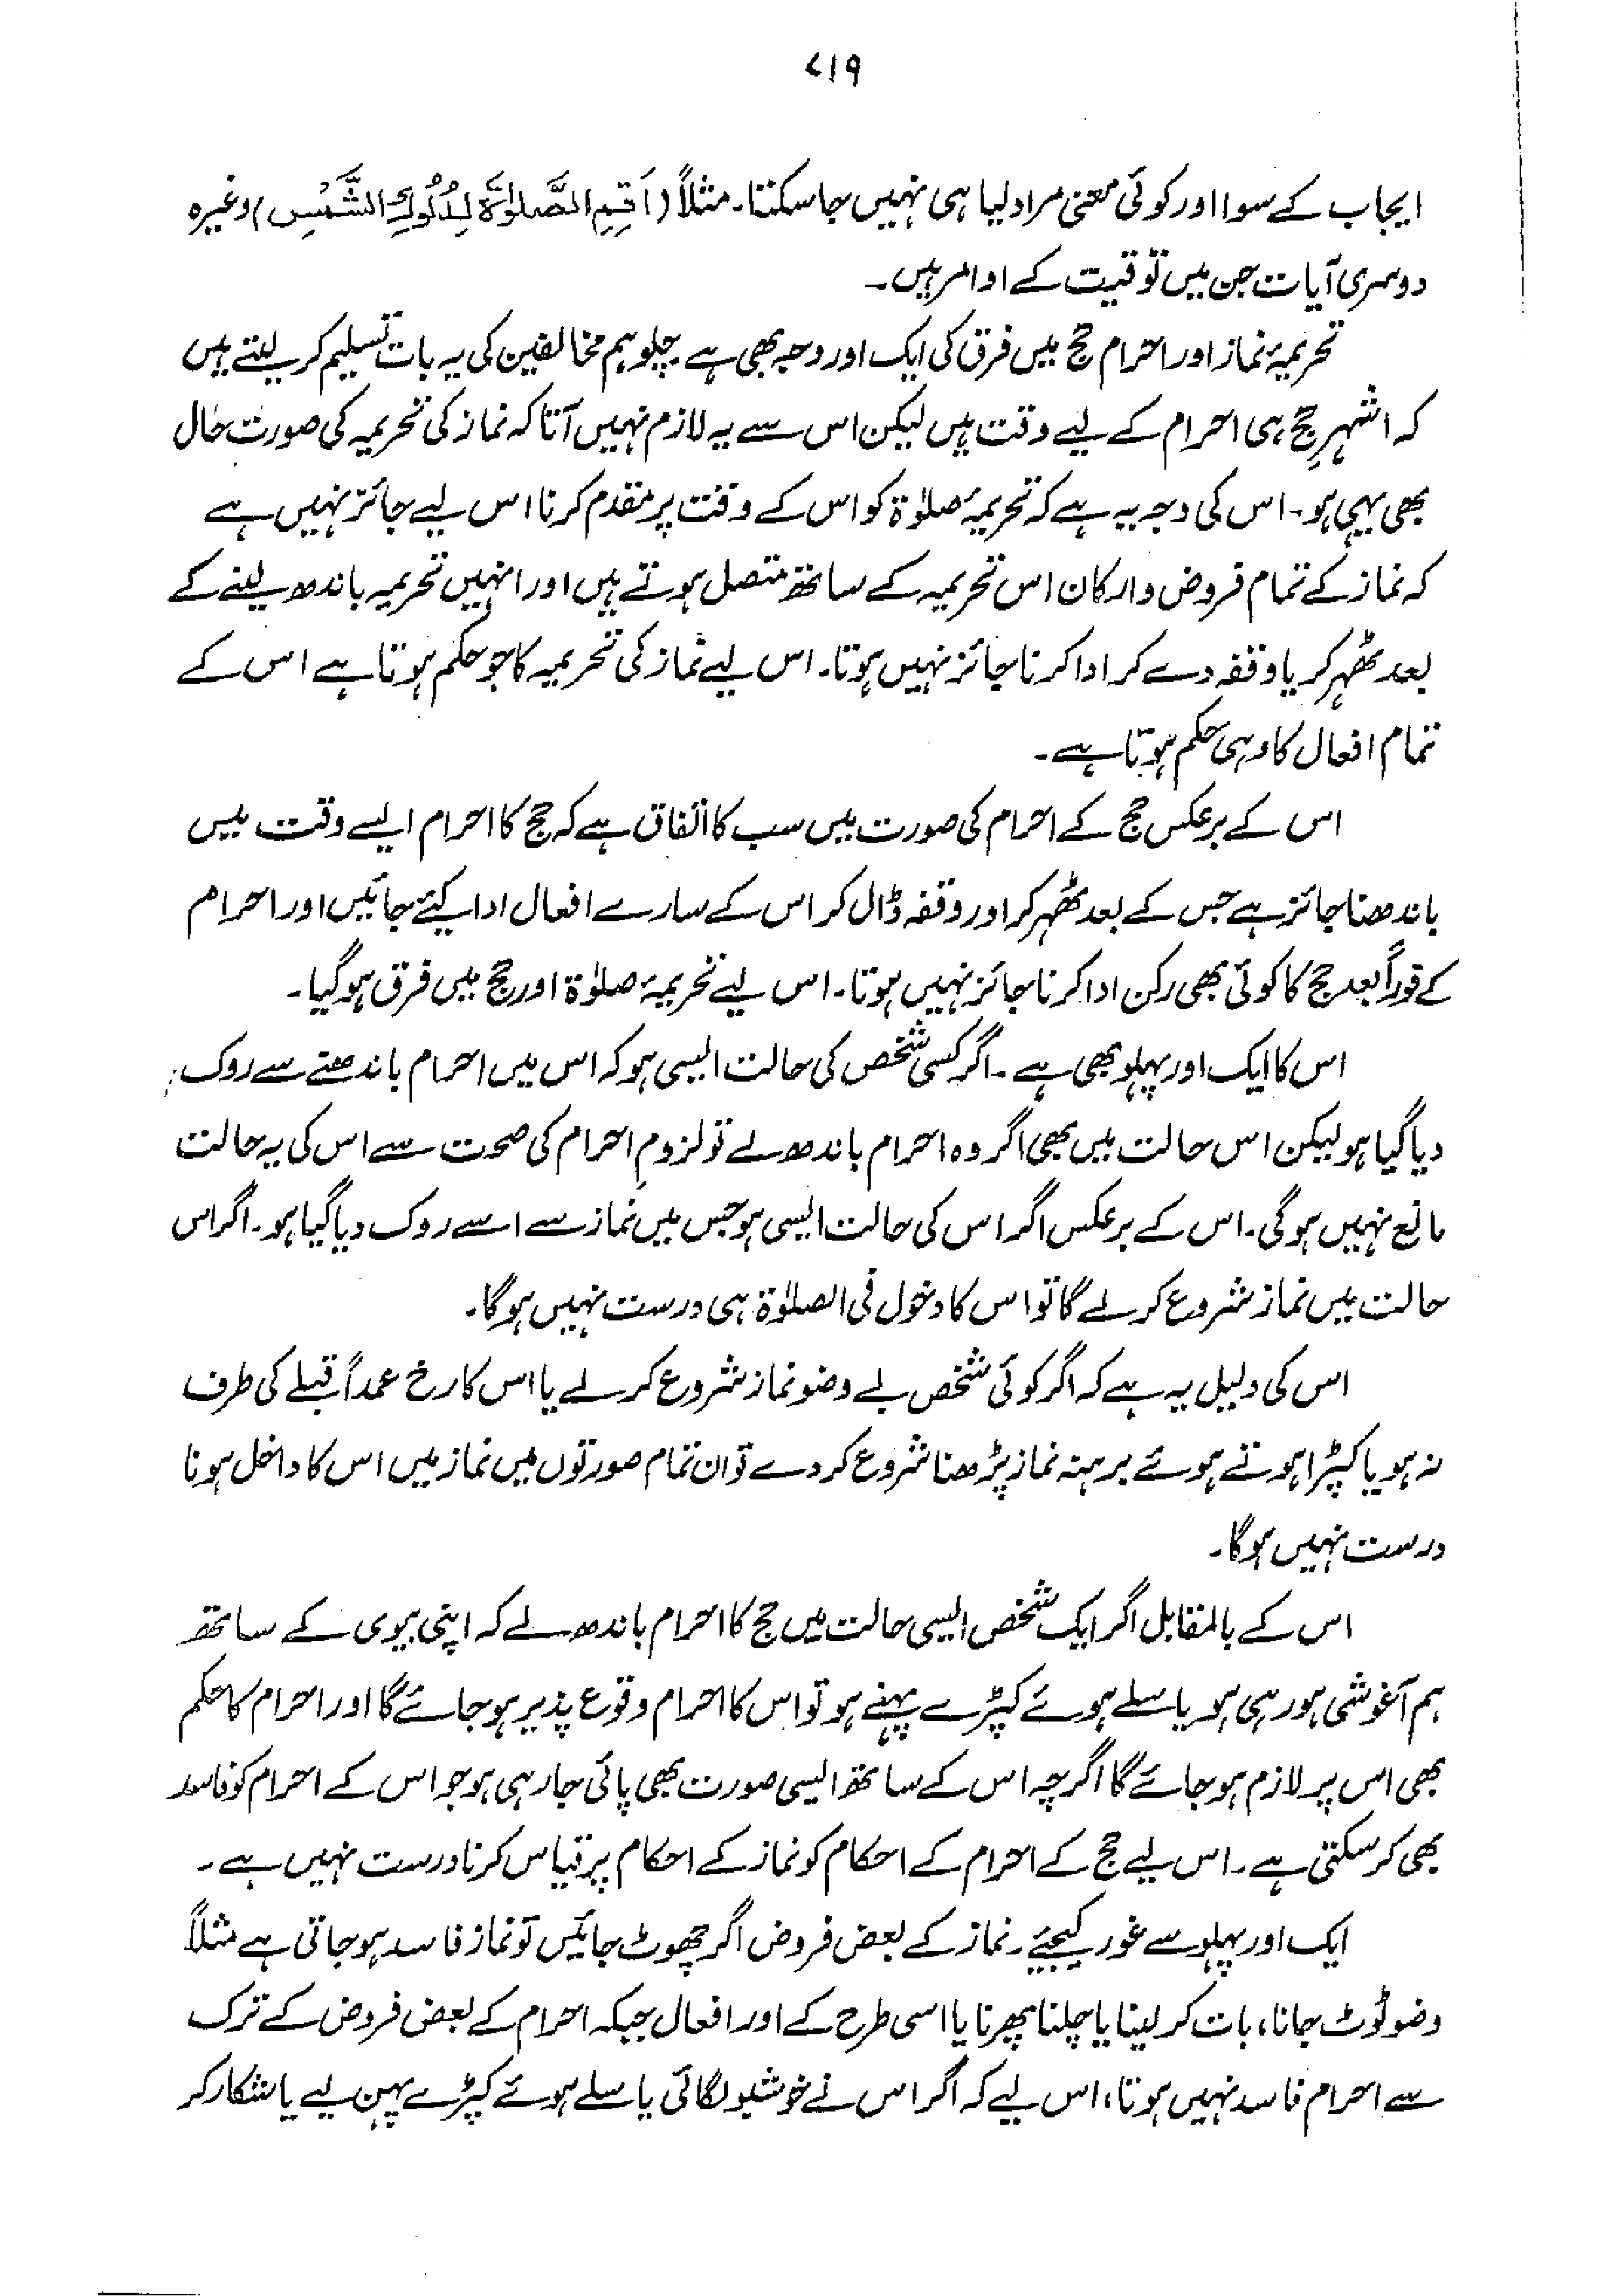 ۷۱۹
ایجاب کے سوا اور کوئی معنی مراد لیا ہی نہیں جا سکتا۔ مثلاً (اَقِمِ الصَّلوٰۃَ لِدُلُوكِ الشَّمْسِ) وغیرہ
دوسری آیات جن میں توقیت کے اوامر ہیں۔
تحریمۂ نماز اور احرام حج میں فرق کی ایک اور وجہ بھی ہے چلو ہم مخالفین کی یہ بات تسلیم کر لیتے ہیں
کہ اشہرِ حج ہی احرام کے لیے وقت ہیں لیکن اس سے یہ لازم نہیں آتا کہ نماز کی تحریمہ کی صورت حال
بھی یہی ہو۔ اس کی وجہ یہ ہے کہ تحریمۂ صلوٰۃ کو اس کے وقت پر مقدم کرنا اس لیے جائز نہیں ہے
کہ نماز کے تمام فروض و ارکان اس تحریمہ کے ساتھ متصل ہوتے ہیں اور انہیں تحریمہ باندھ لینے کے
بعد ٹھہر کر یا وقفہ دے کر ادا کرنا جائز نہیں ہوتا۔ اس لیے نماز کی تحریمہ کا جو حکم ہوتا ہے اس کے
تمام افعال کا وہی حکم ہوتا ہے۔
اس کے برعکس حج کے احرام کی صورت میں سب کا اتفاق ہے کہ حج کا احرام ایسے وقت میں
باندھنا جائز ہے جس کے بعد ٹھہر کر اور وقفہ ڈال کر اس کے سارے افعال ادا کیئے جائیں اور احرام
کے فوراً بعد حج کا کوئی بھی رکن ادا کرنا جائز نہیں ہوتا۔ اس لیے تحریمۂ صلوٰۃ اور حج میں فرق ہو گیا۔
اس کا ایک اور پہلو بھی ہے۔ اگر کسی شخص کی حالت ایسی ہو کہ اس میں احرام باندھنے سے روک
دیا گیا ہو لیکن اس حالت میں بھی اگر وہ احرام باندھ لے تو لزومِ احرام کی صحت سے اس کی یہ حالت
مانع نہیں ہوگی۔ اس کے برعکس اگر اس کی حالت ایسی ہو جس میں نماز سے اسے روک دیا گیا ہو۔ اگر اس
حالت میں نماز شروع کر لے گا تو اس کا دخول فی الصلوٰۃ ہی درست نہیں ہوگا۔
اس کی دلیل یہ ہے کہ اگر کوئی شخص بے وضو نماز شروع کر لے یا اس کا رخ عمداً قبلے کی طرف
نہ ہو یا کپڑا ہوتے ہوئے برہنہ نماز پڑھنا شروع کر دے تو ان تمام صورتوں میں نماز میں اس کا داخل ہونا
درست نہیں ہوگا۔
اس کے بالمقابل اگر ایک شخص ایسی حالت میں حج کا احرام باندھ لے کہ اپنی بیوی کے ساتھ
ہم آغوشی ہو رہی ہو یا سلے ہوئے کپڑے پہنے ہو تو اس کا احرام وقوع پذیر ہو جائے گا اور احرام کا حکم
بھی اس پر لازم ہو جائے گا اگرچہ اس کے ساتھ ایسی صورت بھی پائی جا رہی ہو جو اس کے احرام کو فاسد
بھی کر سکتی ہے۔ اس لیے حج کے احرام کے احکام کو نماز کے احکام پر قیاس کرنا درست نہیں ہے۔
ایک اور پہلو سے غور کیجیئے۔ نماز کے بعض فروض اگر چھوٹ جائیں تو نماز فاسد ہو جاتی ہے مثلاً
وضو ٹوٹ جانا، بات کر لینا یا چلنا پھرنا یا اسی طرح کے اور افعال جبکہ احرام کے بعض فروض کے ترک
سے احرام فاسد نہیں ہوتا، اس لیے کہ اگر اس نے خوشبو لگائی یا سلے ہوئے کپڑے پہن لیے یا شکار کر